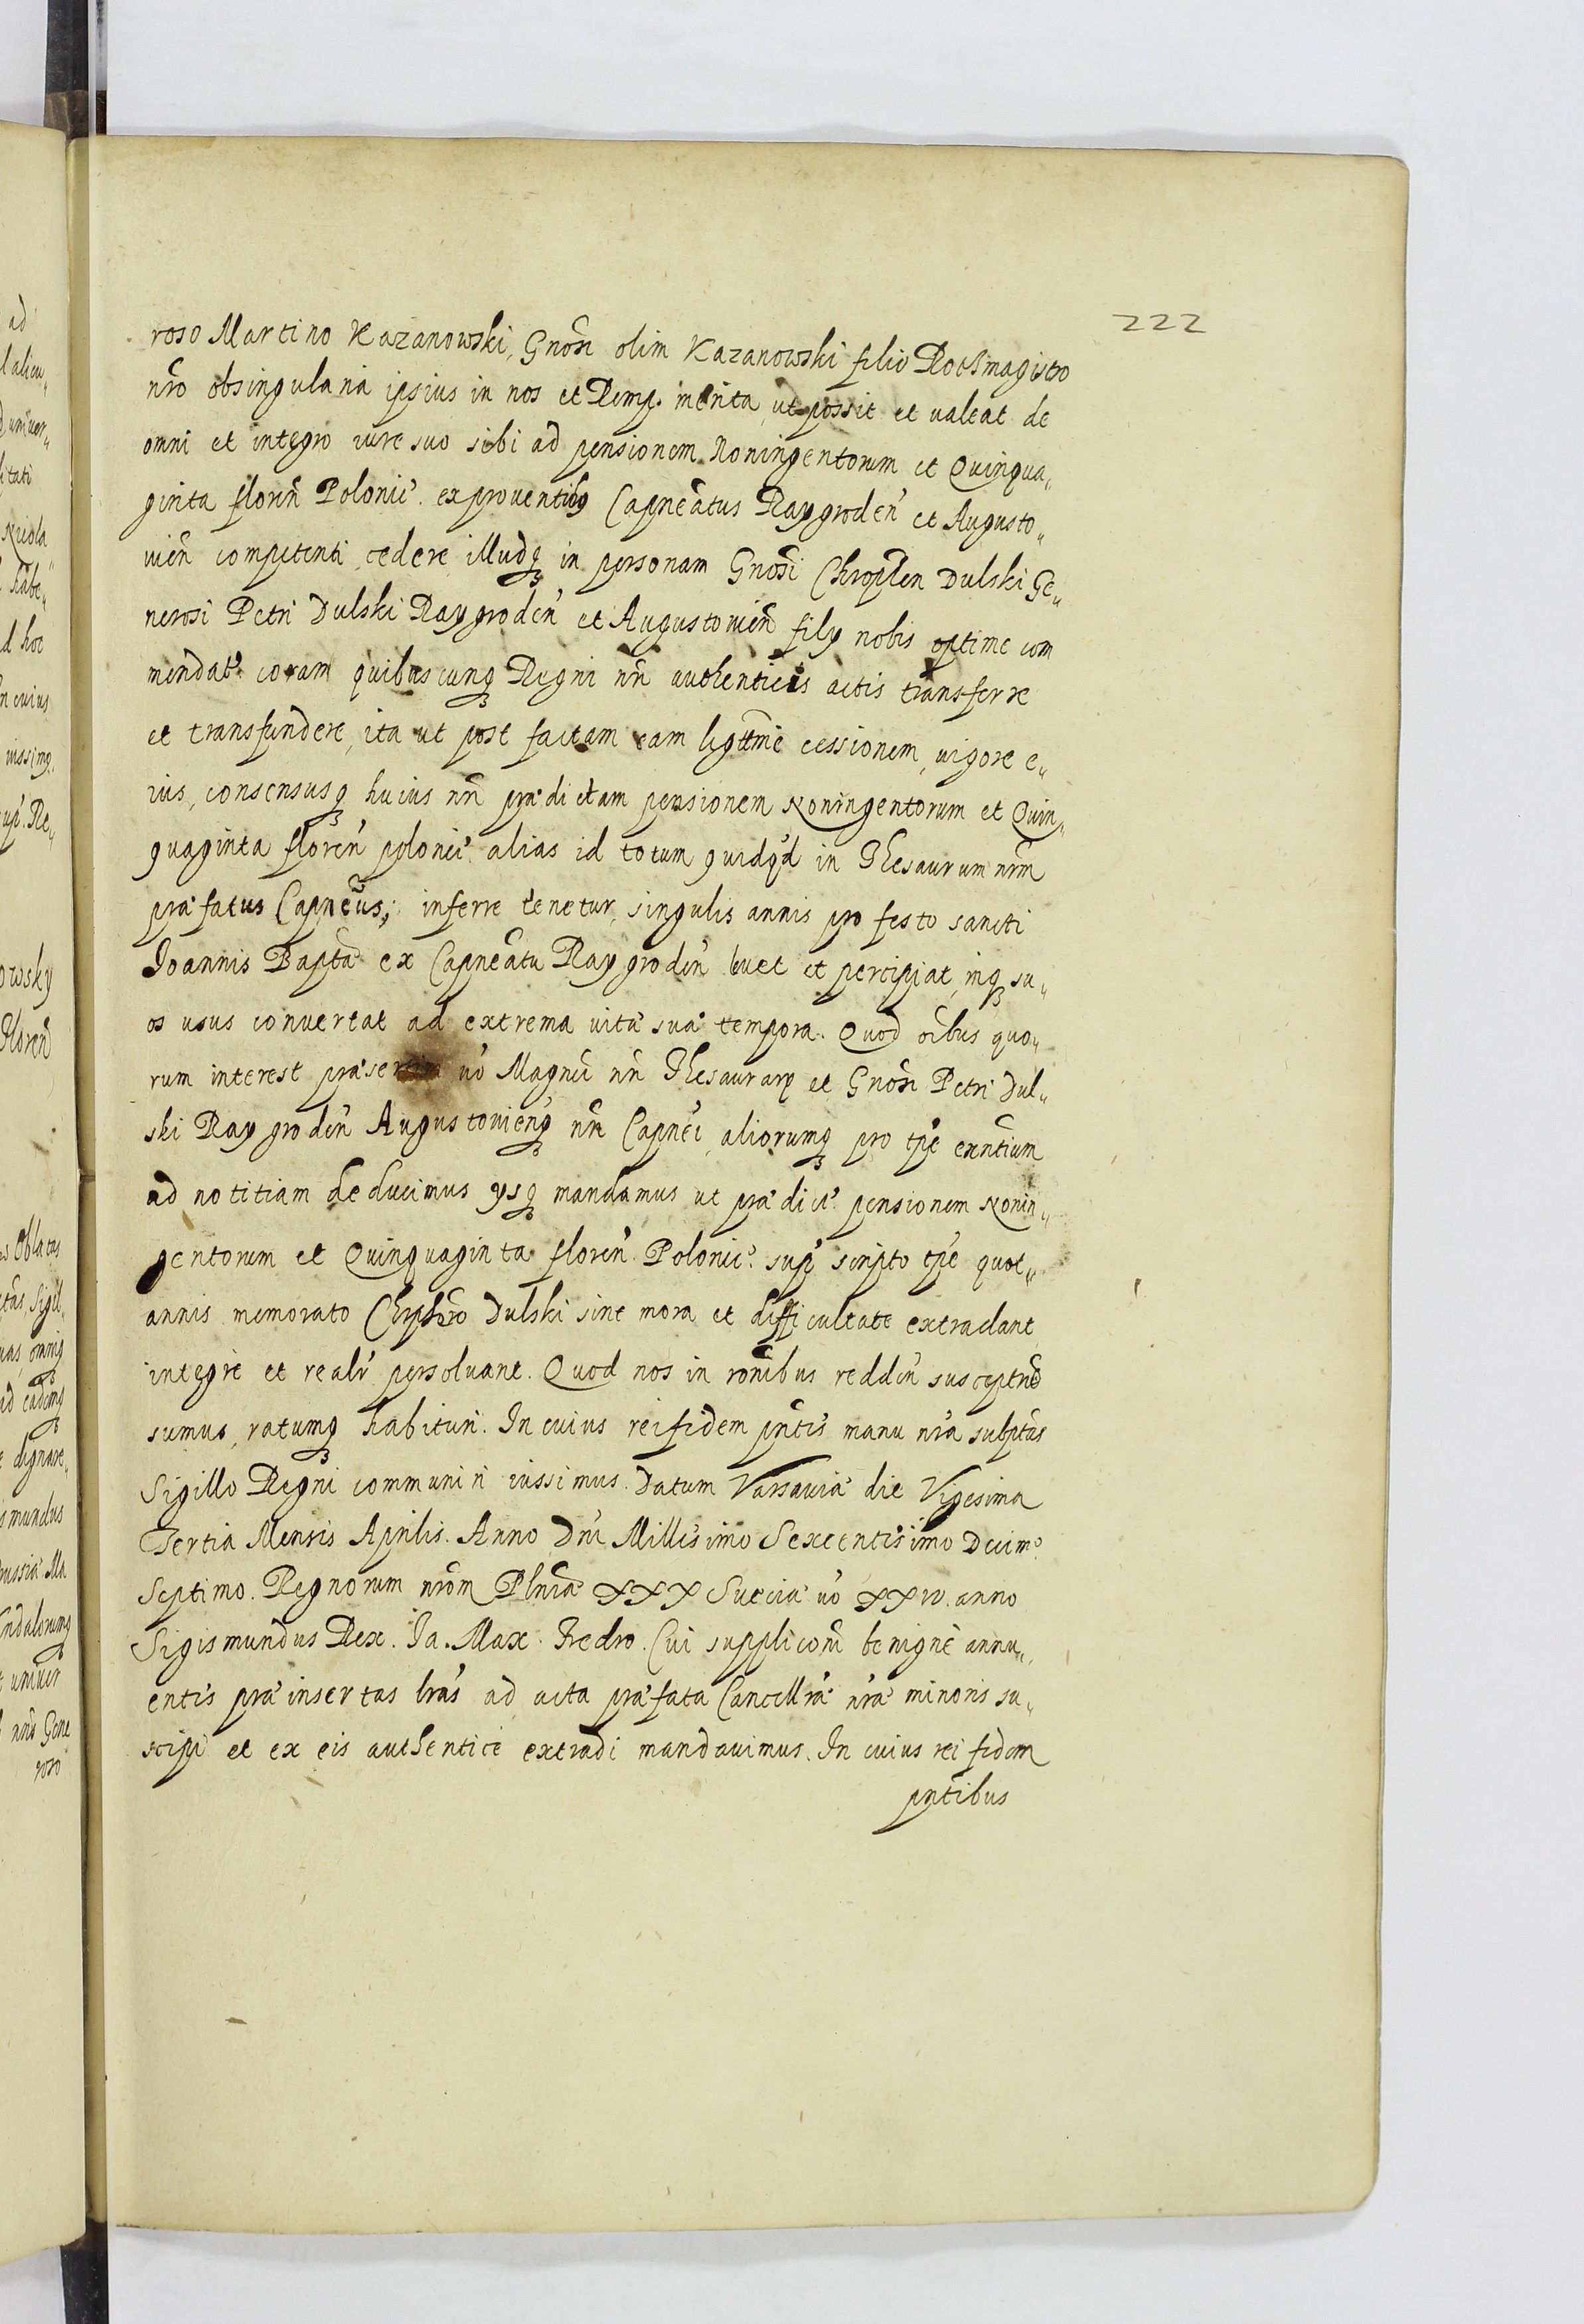 222
roso Martino Kazanowski, Gnosi olim Kazanowski filio Rotmagistro
nro ob singularia ipsius in nos et Remp. merita, ut possit et ualeat de
omni et integro iure suo sibi ad pensionem Noningentorum et Quinqua„
ginta floren Polonic. ex prouentibus Capneatus Raygroden et Augusto„
uien competenti, cedere illudq in personam Gnosi Dulski Ge„
nerosi Petri Dulski Raygroden et Augustouien filij nobis optime com
mendat. coram quibuscunq Regni nri authenticis actis transferre
et transfundere, ita ut post factam eam legttme cessionem, uigore e„
ius, consensusq huius nri prædictam pensionem Noningentorum et Quin„
quaginta floren polonic alias id totum quidqd in Thesaurum nrm
præfatus Capneus, inferre tenetur, singulis annis pro festo sancti
Joannis Bapta ex Capneatu Raygroden leuet et percipiat, inq su„
os usus conuertat ad extrema uitæ suæ tempora. Quod oibus quo„
rum interest præsertim uo Magnci nri Thesaurarij et Gnosi Petri Dul„
ski Raygroden Augustouienq nri Capnei, aliorumq pro tpe exntium
ad notitiam deducimus ysq mandamus ut prædict. pensionem Nonin„
gentorum et Quinquaginta floren Polonic. sup scripto tpe quot„
annis memorato Chrphero Dulski sine mora et difficultate extradant
integre et realr persoluant. Quod nos in ronibus redden suscepturi
sumus, ratumq habituri. In cuius rei fidem pntes manu nra subptas
Sigillo Regni communiri iussimus. Datum Varsauiæ die Vigesima
Tertia Mensis Aprilis. Anno Dni Millesimo Sexcentesimo Decimo
Septimo. Regnorum nrom Plniæ XXX Sueciæ uo XXIV. anno
Sigismundus Rex. Ja. Max. Fredro. Cui suppliconi benignè annu„
entes præinsertas lras ad acta præfata Cancellriæ nræ minoris su„
scipi et ex eis authenticè extradi mandauimus. In cuius rei fidem
pntibus